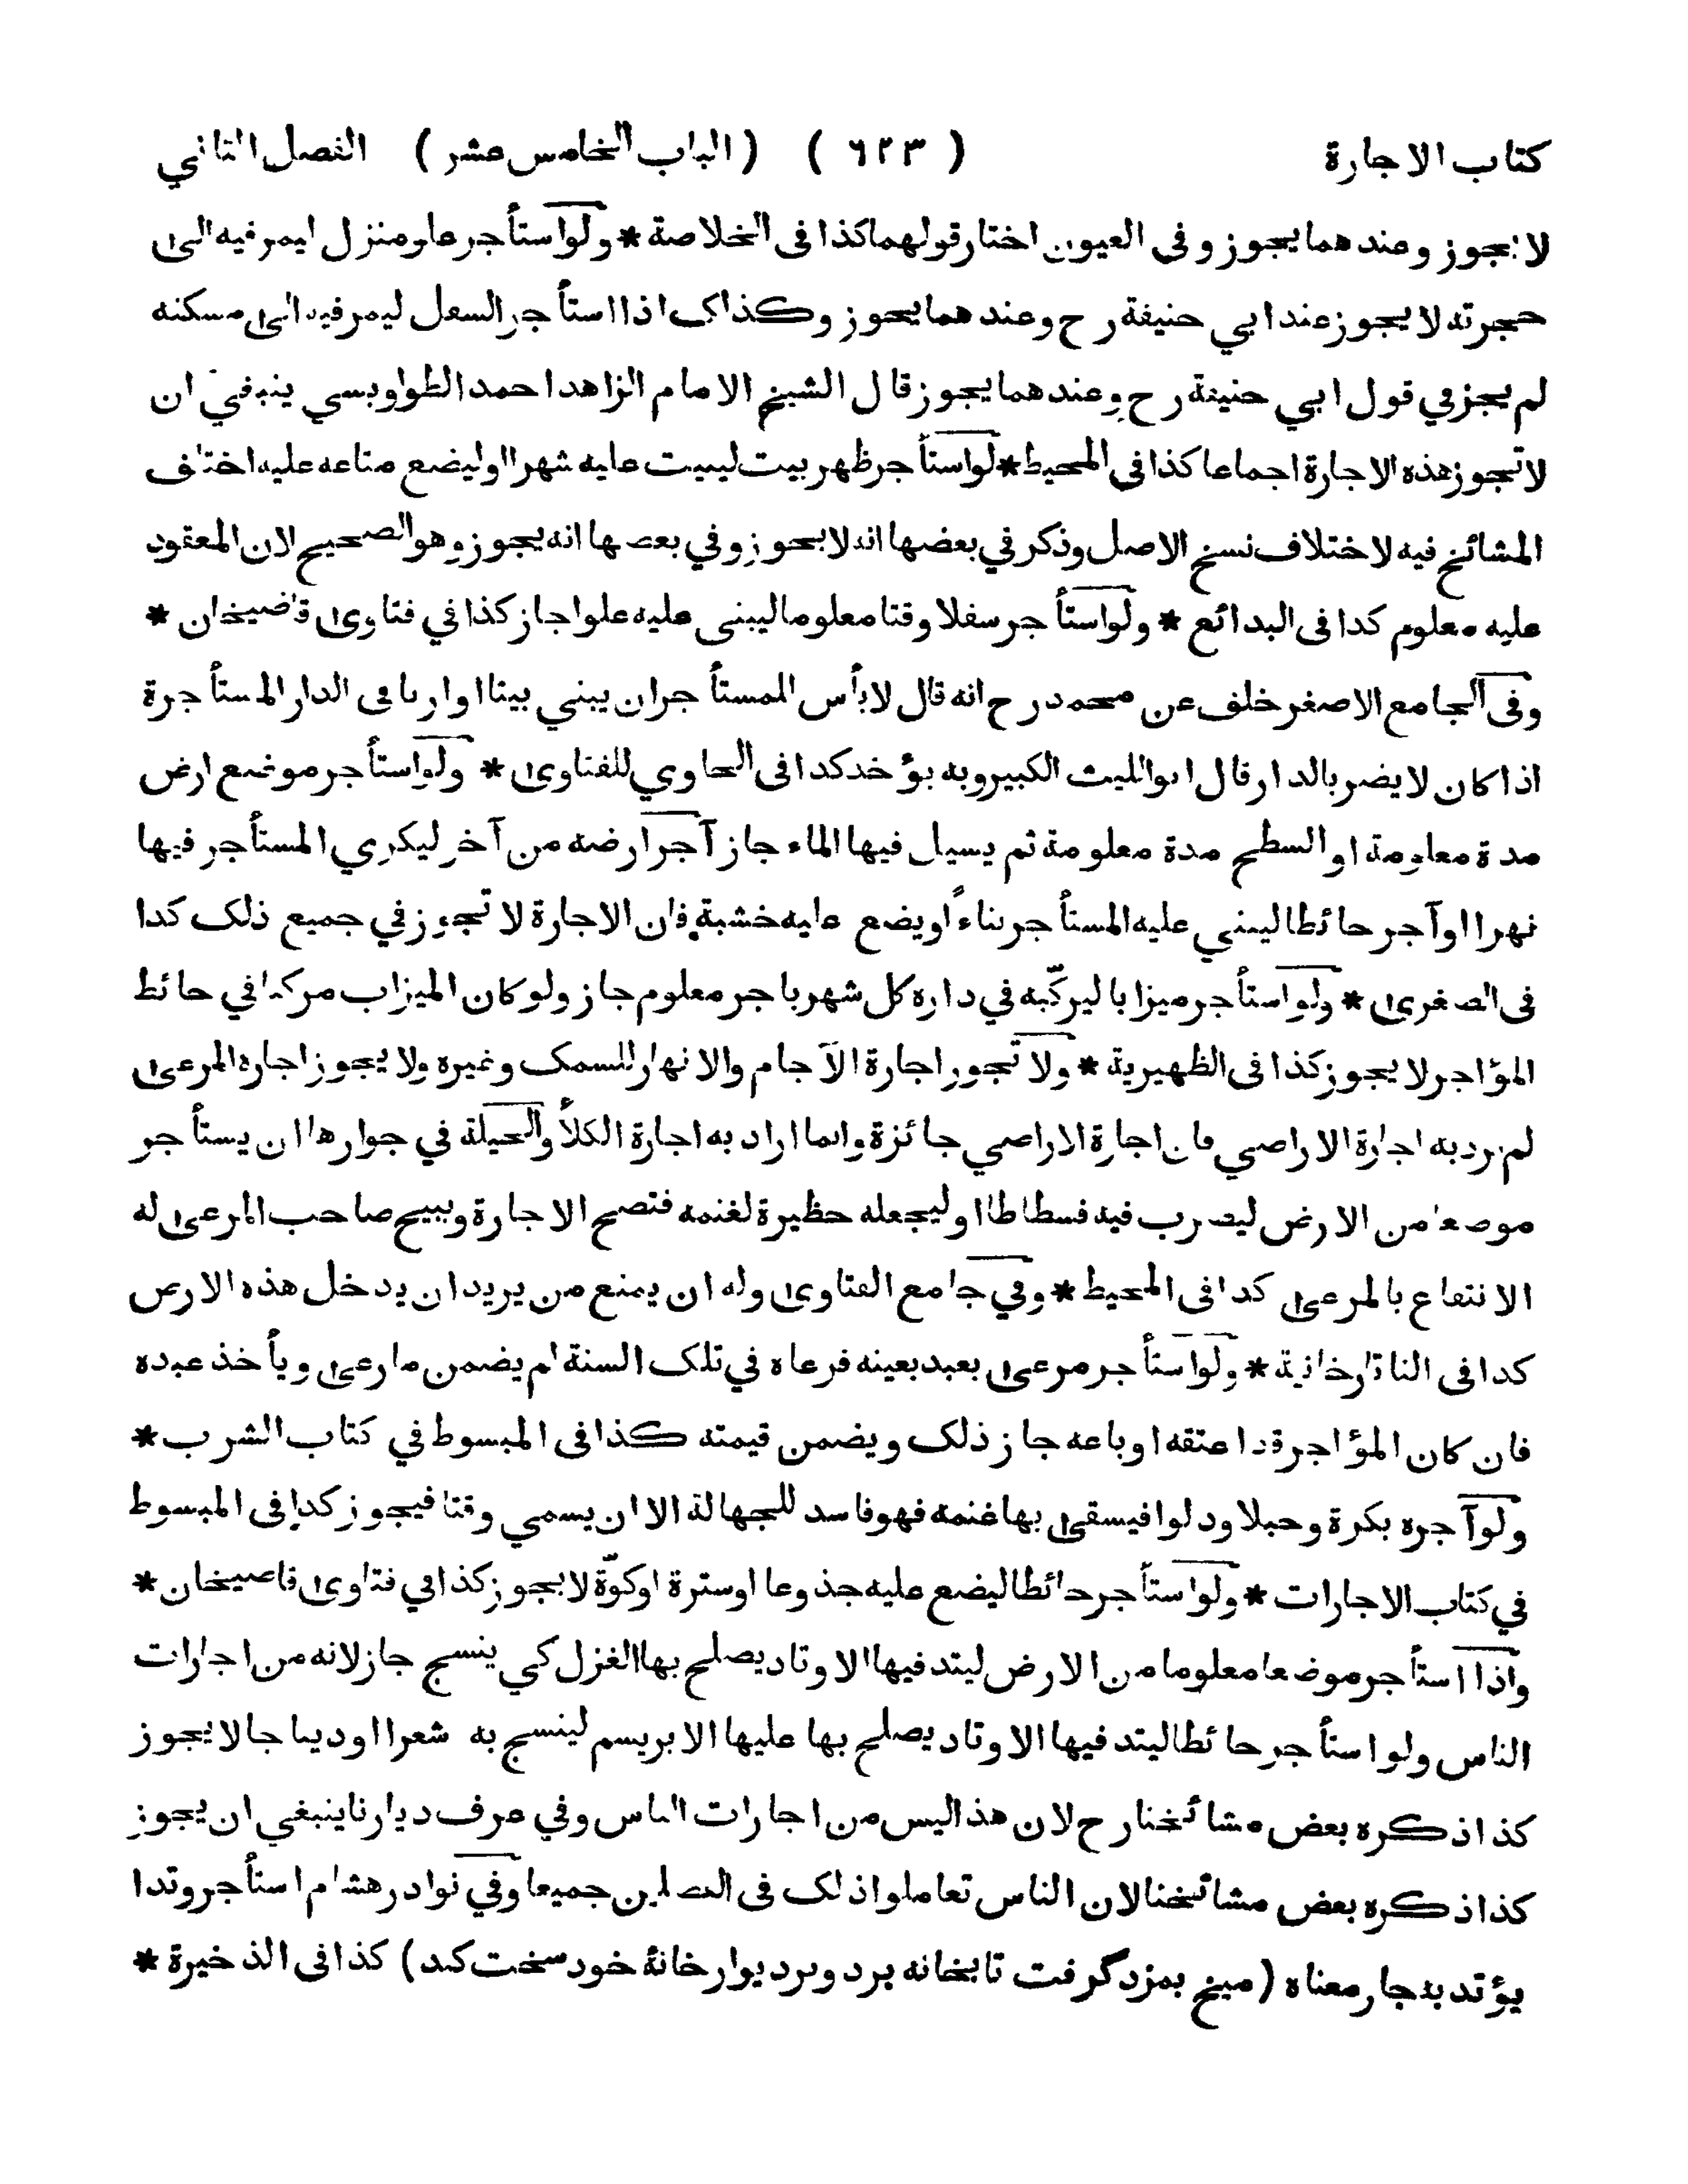 كتاب الاجارة ( ٦٢٣ ) ( الباب الخامس عشر ) الفصل الثاني
لا يجوز وعندهما يجوز وفى العيون اختار قولهما كذا فى الخلاصة * ولو استأجر علو منزل ليمر فيه الى
حجرته لا يجوز عند ابي حنيفة رح وعندهما يجوز وكذلك اذا استأجر السفل ليمر فيه الى مسكنه
لم يجز في قول ابي حنيفة رح وعندهما يجوز قال الشيخ الامام الزاهد احمد الطواويسي ينبغي ان
لا تجوز هذه الاجارة اجماعا كذا فى المحيط * لو استأجر ظهر بيت ليبيت عليه شهرا او ليضع متاعه عليه اختلف
المشائخ فيه لاختلاف نسخ الاصل وذكر في بعضها انه لا يجوز وفي بعضها انه يجوز وهو الصحيح لان المعقود
عليه معلوم كذا فى البدائع * ولو استأجر سفلا وقتا معلوما ليبنى عليه علوا جاز كذا في فتاوى قاضيخان *
وفى الجامع الاصغر خلف عن محمد رح انه قال لا بأس للمستأجر ان يبني بيتا او اريا فى الدار المستأجرة
اذا كان لا يضر بالدار قال ابو الليث الكبير وبه يؤخذ كذا فى الحاوي للفتاوى * ولو استأجر موضع ارض
مدة معلومة او السطح مدة معلومة ثم يسيل فيها الماء جاز آجر ارضه من آخر ليكري المستأجر فيها
نهرا او آجر حائطا ليبني عليه المستأجر بناءً او يضع عليه خشبة فان الاجارة لا تجوز في جميع ذلك كذا
فى الصغرى * ولو استأجر ميزابا ليركّبه في داره كل شهر باجر معلوم جاز ولو كان الميزاب مركبا في حائط
المؤاجر لا يجوز كذا فى الظهيرية * ولا تجوز اجارة الآجام والانهار للسمك وغيره ولا يجوز اجارة المرعى
لم يرد به اجارة الاراضي فان اجارة الاراضي جائزة وانما اراد به اجارة الكلأ والحيلة في جوازها ان يستأجر
موضعا من الارض ليضرب فيه فسطاطا او ليجعله حظيرة لغنمه فتصح الاجارة ويبيح صاحب المرعى له
الانتفاع بالمرعى كذا فى المحيط * وفي جامع الفتاوى وله ان يمنع من يريد ان يدخل هذه الارض
كذا فى التاتارخانية * ولو استأجر مرعى بعبد بعينه فرعاه في تلك السنة لم يضمن ما رعى ويأخذ عبده
فان كان المؤاجر قد اعتقه او باعه جاز ذلك ويضمن قيمته كذا فى المبسوط في كتاب الشرب *
ولو آجره بكرة وحبلا ودلوا فيسقى بها غنمه فهو فاسد للجهالة الا ان يسمي وقتا فيجوز كذا فى المبسوط
في كتاب الاجارات * ولو استأجر حائطا ليضع عليه جذوعا او سترة او كوّة لا يجوز كذا في فتاوى قاضيخان *
واذا استأجر موضعا معلوما من الارض ليتد فيها الاوتاد يصلح بها الغزل كي ينسج جاز لانه من اجارات
الناس ولو استأجر حائطا ليتد فيها الاوتاد يصلح بها عليها الابريسم لينسج به شعرا او ديباجا لا يجوز
كذا ذكره بعض مشائخنا رح لان هذا ليس من اجارات الناس وفي عرف ديارنا ينبغي ان يجوز
كذا ذكره بعض مشائخنا لان الناس تعاملوا ذلك فى الفصلين جميعا وفي نوادر هشام استأجر وتدا
يؤتد به جاز معناه (ميخ بمزد گرفت تا بخانه برد وبرد يوار خانهٔ خود سخت كند) كذا فى الذخيرة *